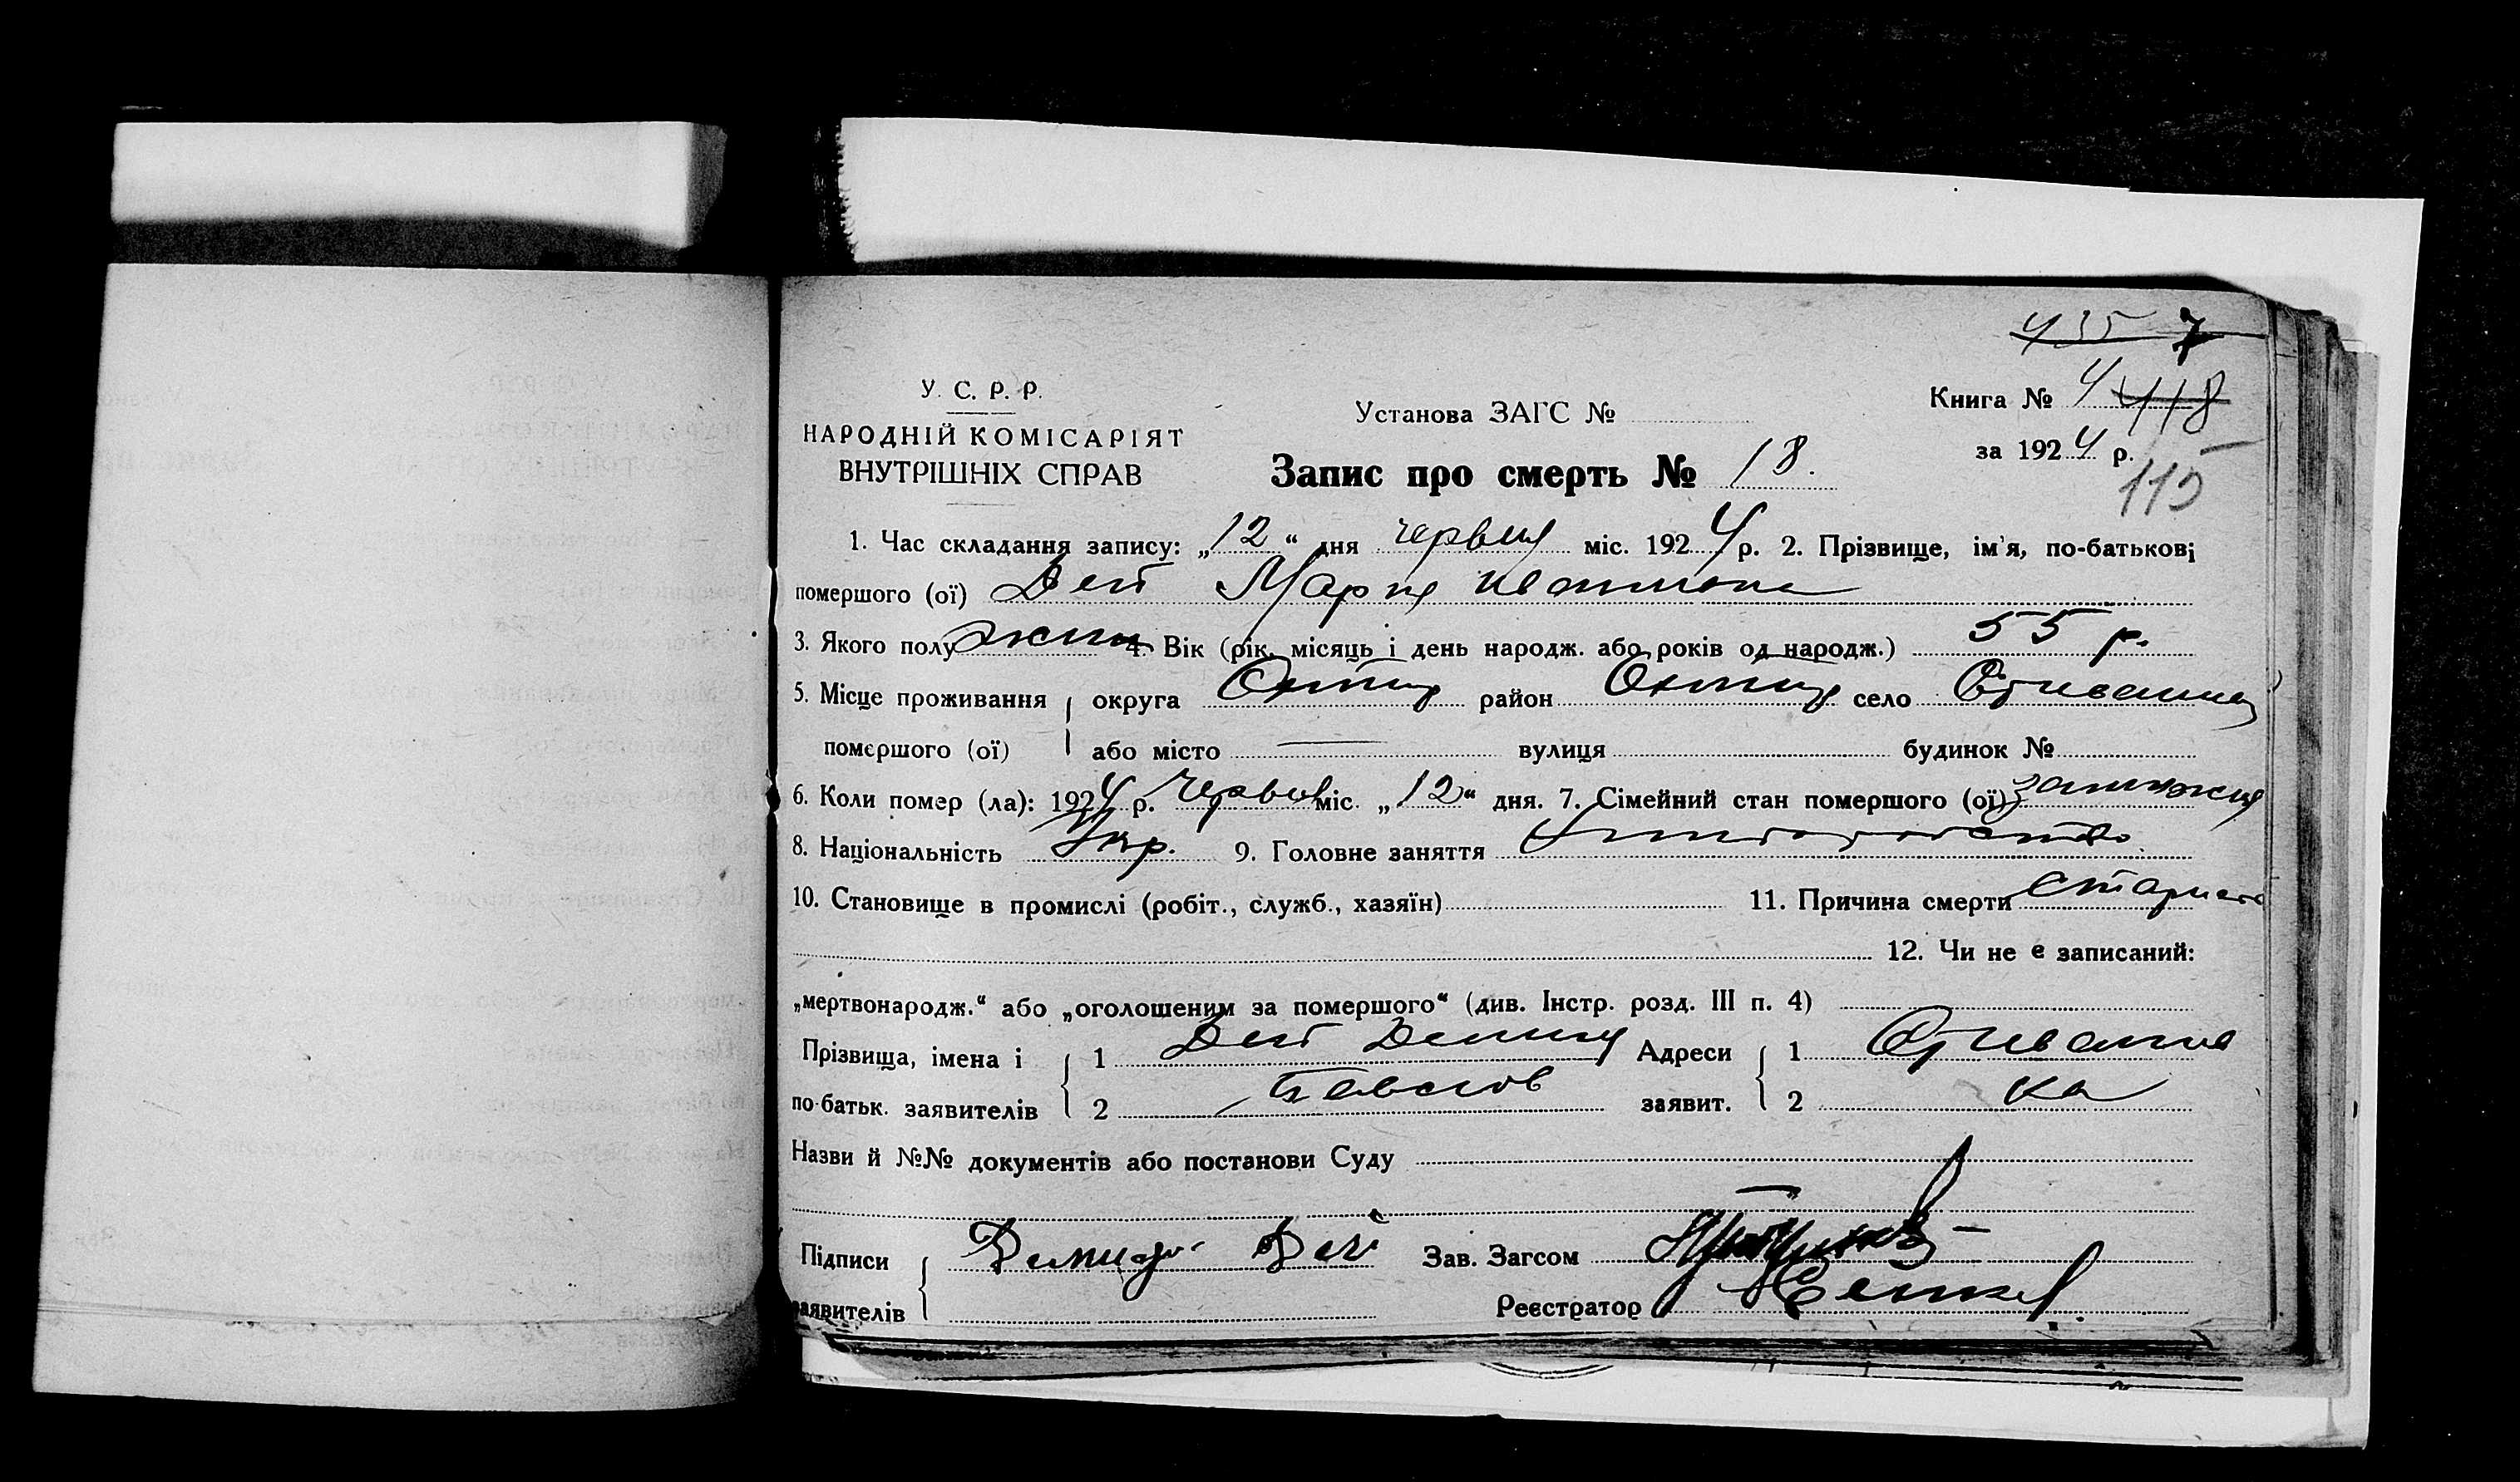 435 7
У. С. Р. Р.
НАРОДНІЙ КОМІСАРІЯТ
ВНУТРІШНІХ СПРАВ
Установа ЗАГС №
Книга № 4 418
за 1924 р.
115
Запис про смерть № 18.
1. Час складання запису: „12“ дня червня міс. 1924 р. 2. Прізвище, ім'я, по-батькові
помершого (ої) Дей Мария
3. Якого полу жін 4. Вік (рік, місяць і день народж. або років од народж.) 55 р.
5. Місце проживання округа Охтир район Охтир село
помершого (ої) або місто — вулиця будинок №
6. Коли помер (ла): 1924 р. червня міс. „12“ дня. 7. Сімейний стан помершого (ої) замужня
8. Національність Укр. 9. Головне заняття
10. Становище в промислі (робіт., служб., хазяїн) 11. Причина смерти старість
12. Чи не є записаний:
„мертвонародж.“ або „оголошеним за помершого“ (див. Інстр. розд. III п. 4)
Прізвища, імена і 1 Дей Демид Адреси 1
по-батьк. заявителів 2 заявит. 2 ка
Назви й №№ документів або постанови Суду
Підписи Демид Дей Зав. Загсом
заявителів Реєстратор